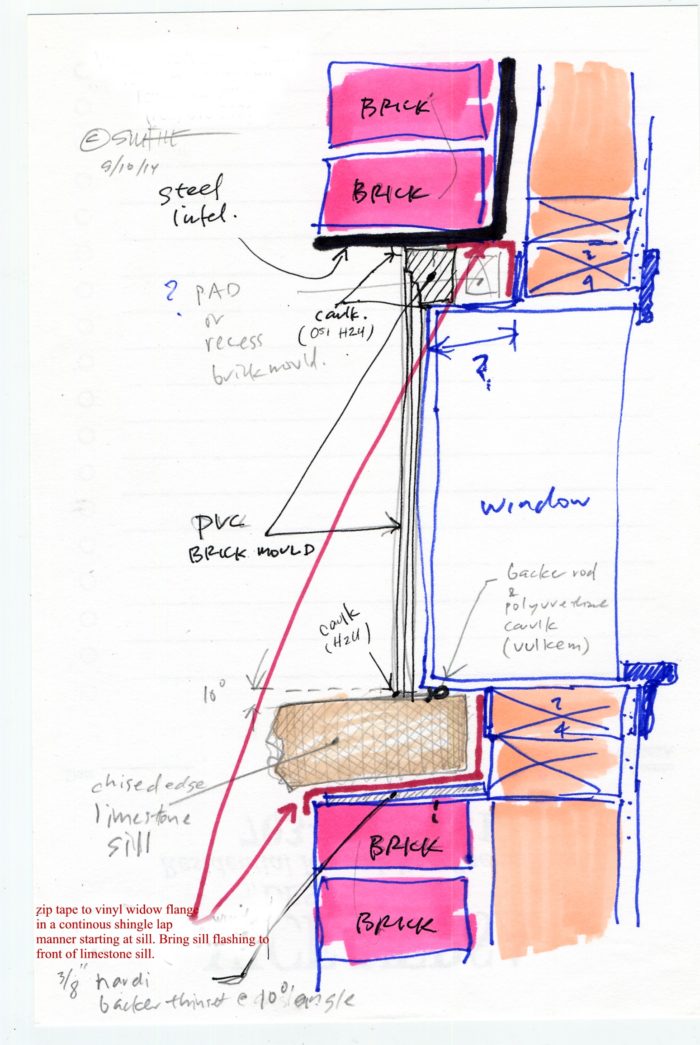 BRICK
BRICK
9/10/14
steel
lintel.
? PAD
or
recess
brickmould.
caulk.
(OSI H2U)
2
4
?
window
PVC
BRICK MOULD
backer rod
&
polyurethane
caulk
(vulkem)
caulk
(H2U)
10°
2
4
chiseled edge
limestone
sill
BRICK
BRICK
zip tape to vinyl widow flange
in a continous shingle lap
manner starting at sill. Bring sill flashing to
front of limestone sill.
3/8" hardi
backer thinset @ 10° angle